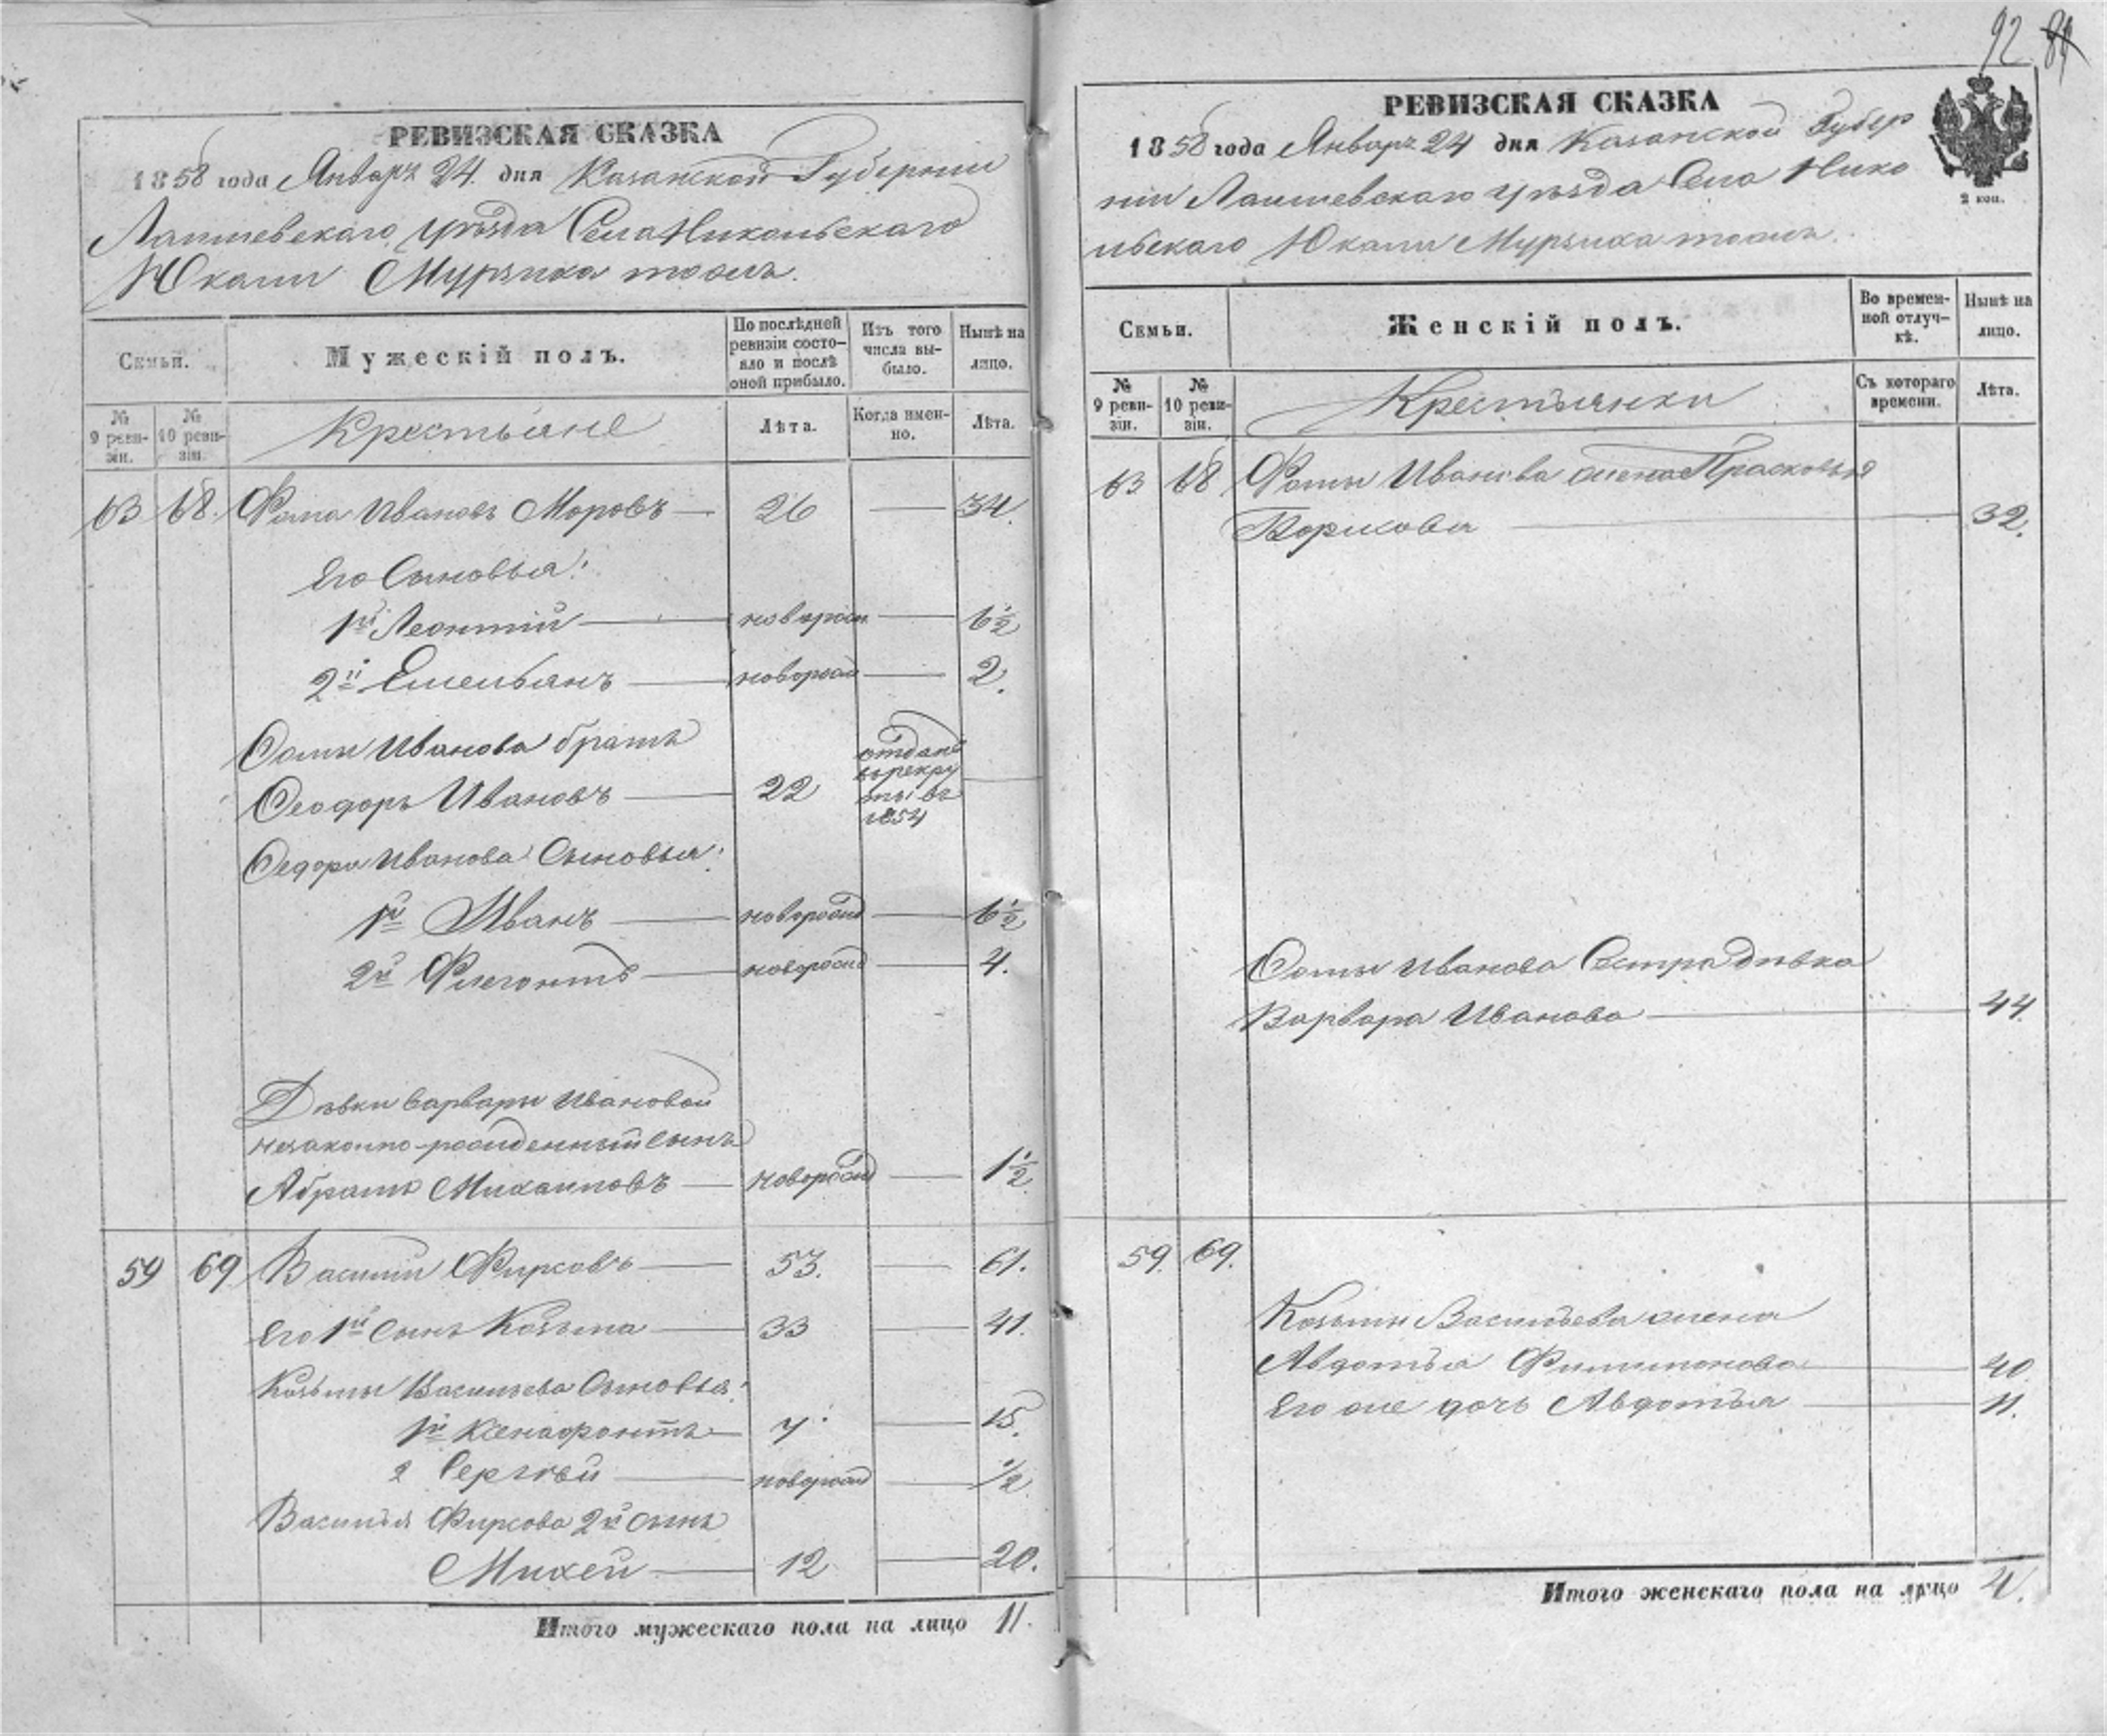 92 89
РЕВИЗСКАЯ СКАЗКА
1858 года Январь 24 дня Казанской Губернии
Лаишевскаго уѣзда Села Никольскаго
Юкали Мурзиха тожъ.
Семьи.
Мужескій полъ.
По послѣдней ревизіи состояло и послѣ оной прибыло.
Изъ того числа выбыло.
Нынѣ на лицо.
№ 9 ревизіи.
№ 10 ревизіи.
Крестьяне
Лѣта.
Когда именно.
Лѣта.
63 68. Фома Ивановъ Моровъ 26 34.
Его Сыновья:
1й Леонтій новорожд 6½
2й Емельянъ новорожд 2.
Ѳомы Иванова братъ
Ѳеодоръ Ивановъ 22 отданъ
въ рекру
ты въ
1854
Ѳедора Иванова Сыновья:
1й Иванъ новорожд 6½
2й Флегонтъ новорожд 4.
Дѣвки Варвары Ивановой
незаконно-рожденный сынъ
Абрамъ Михаиловъ новорожд 1½
59 69 Василій Фирсовъ 53. 61.
Его 1й Сынъ Козьма 33 41.
Козьмы Васильева Сыновья:
1й Ксенофонтъ 7 15.
2 Сергѣй новорожд ½
Василья Фирсова 2й сынъ
Михей 12 20.
Итого мужескаго пола на лицо 11.
РЕВИЗСКАЯ СКАЗКА
1858 года Январь 24 дня Казанской Губер
ніи Лаишевскаго уѣзда Села Нико
льскаго Юкали Мурзиха тожъ.
2 коп.
Семьи.
Женскій полъ.
Во временной отлучкѣ.
Нынѣ на лицо.
№ 9 ревизіи.
№ 10 ревизіи.
Крестьянки
Съ котораго времени.
Лѣта.
63 68 Фомы Иванова жена Прасковья
32.
Ѳомы Иванова Сестра дѣвка
Варвара Иванова 44.
59. 69.
Козьмы Васильева жена
Авдотья Филимонова 40
Его же дочь Авдотья 11.
Итого женскаго пола на лицо 4.